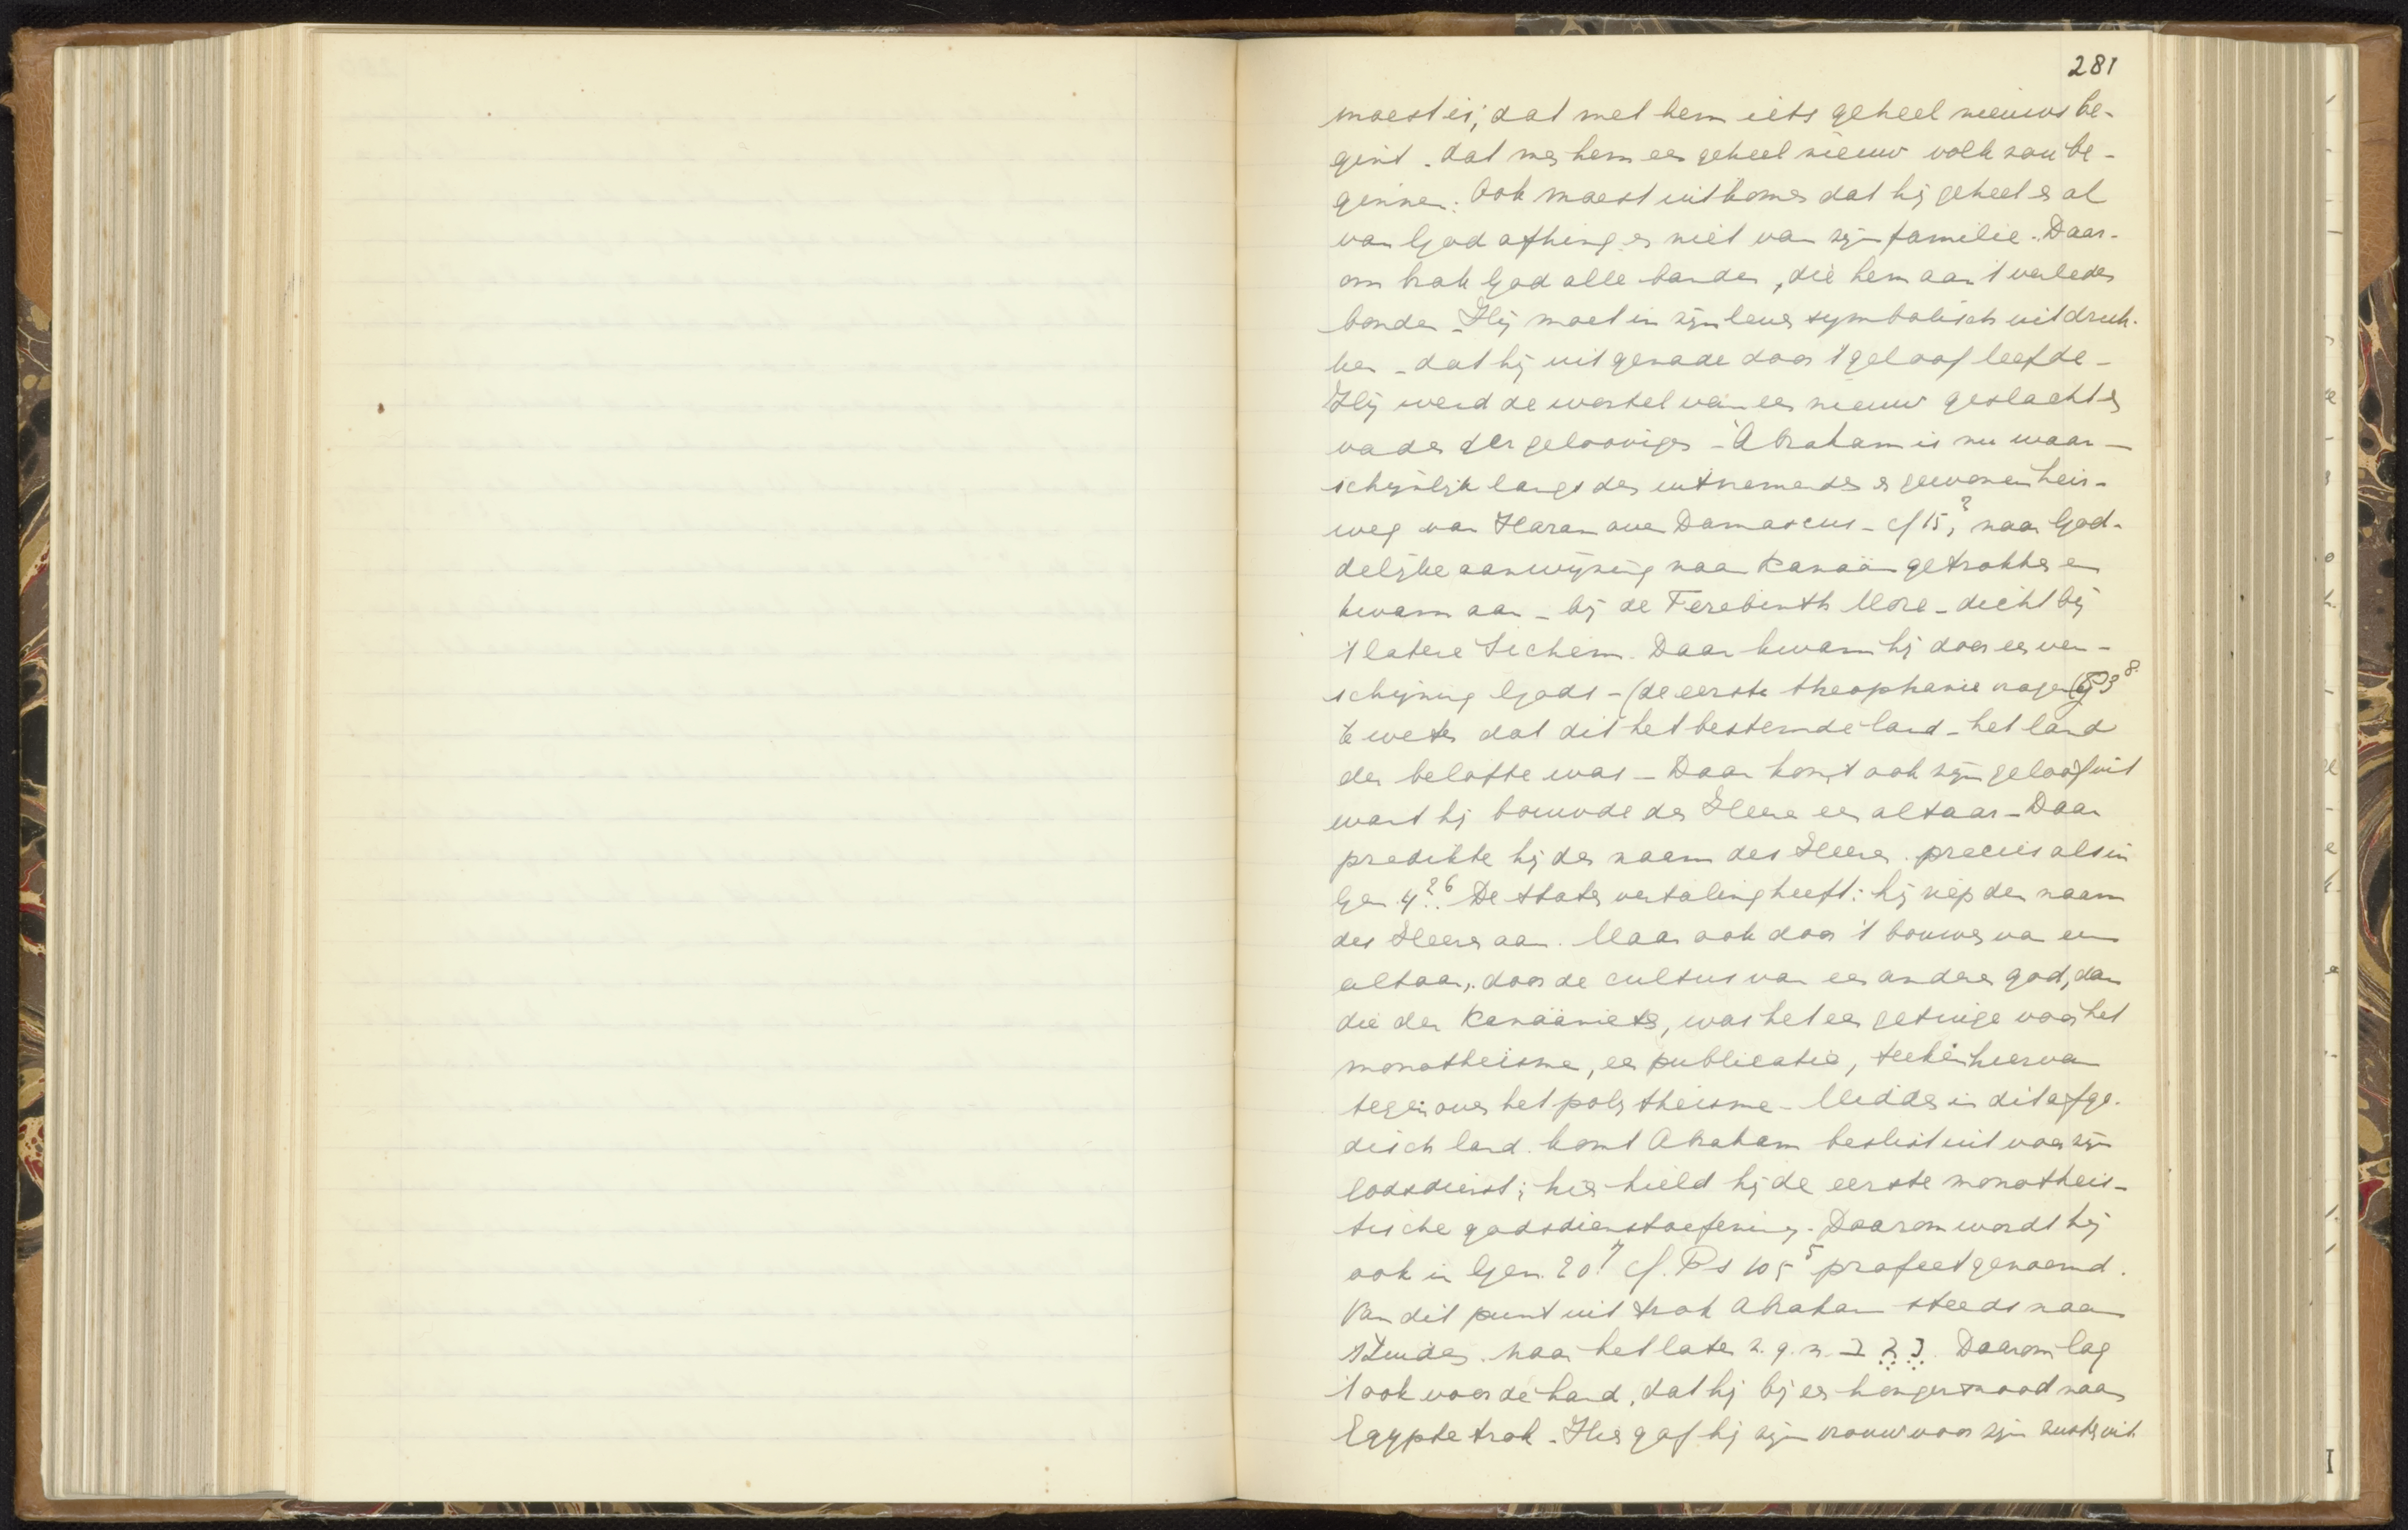 281
moest is; dat met hem iets geheel nieuws be-
gint. dat met hem een geheel nieuw volk zou be-
ginnen. Ook moest uitkomen dat hij geheel en al
van God afhing en niet van zijn familie. Daar-
om brak God alle banden, die hem aan 't verleden
bonden. Hij moet in zijn leven symbolisch uitdruk-
ken - dat hij uit genade door 't geloof leefde -
Hij werd de wortel van een nieuw geslacht en
vader der geloovigen - Abraham is nu waar-
schijnlijk langs den uitnemenden en gewonen heir-
weg van Haran over Damascus - cf 15,² naar God-
delijke aanwijzing naar Kanaän getrokken en
kwam aan - bij de Terebinth More - dicht bij
't latere Sichem. Daar kwam hij door een ver-
schijning Gods - (de eerste theophanie na Gen 3⁸
te weten dat dit het bestemde land - het land
der belofte was - Daar komt ook zijn geloof uit
want hij bouwde den Heere een altaar - Daar
predikte hij den naam des Heeren. precies als in
Gen. 4²⁶. De staten vertaling heeft: hij riep den naam
des Heeren aan. Maar ook door 't bouwen van een
altaar, door de cultus van een andere god, dan
die der Kanaänieten, was het een getuige voor het
monotheisme, een publicatie, teeken hiervan
tegenover het polytheisme - Midden in dit afgo-
disch land komt Abraham beslist uit voor zijn
Godsdienst; hier hield hij de eerste monotheis-
tische godsdienstoefening. Daarom wordt hij
ook in Gen. 20⁷ cf. Ps 105⁵ profeet genoemd.
Van dit punt uit trok Abraham steeds naar
't Zuiden. naar het later z.g.n. נגב. Daarom lag
't ook voor de hand, dat hij bij een hongersnood naar
Egypte trok. Hier gaf hij zijn vrouw voor zijn zuster uit